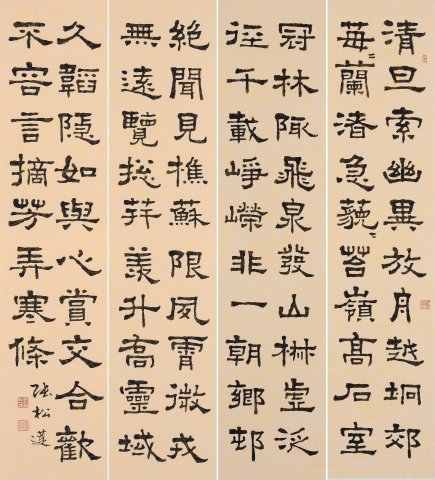 清旦索幽異放舟越坰郊
莓〻蘭渚急藐〻苔嶺高石室
冠林陬飛泉發山椒虛泛
徑千載崢嶸非一朝鄉邨
絕聞見樵蘇限風霄微戎
無遠覽総笄羨升喬靈域
久韜隱如與心賞交合歡
不容言摘芳弄寒條
張松蓮